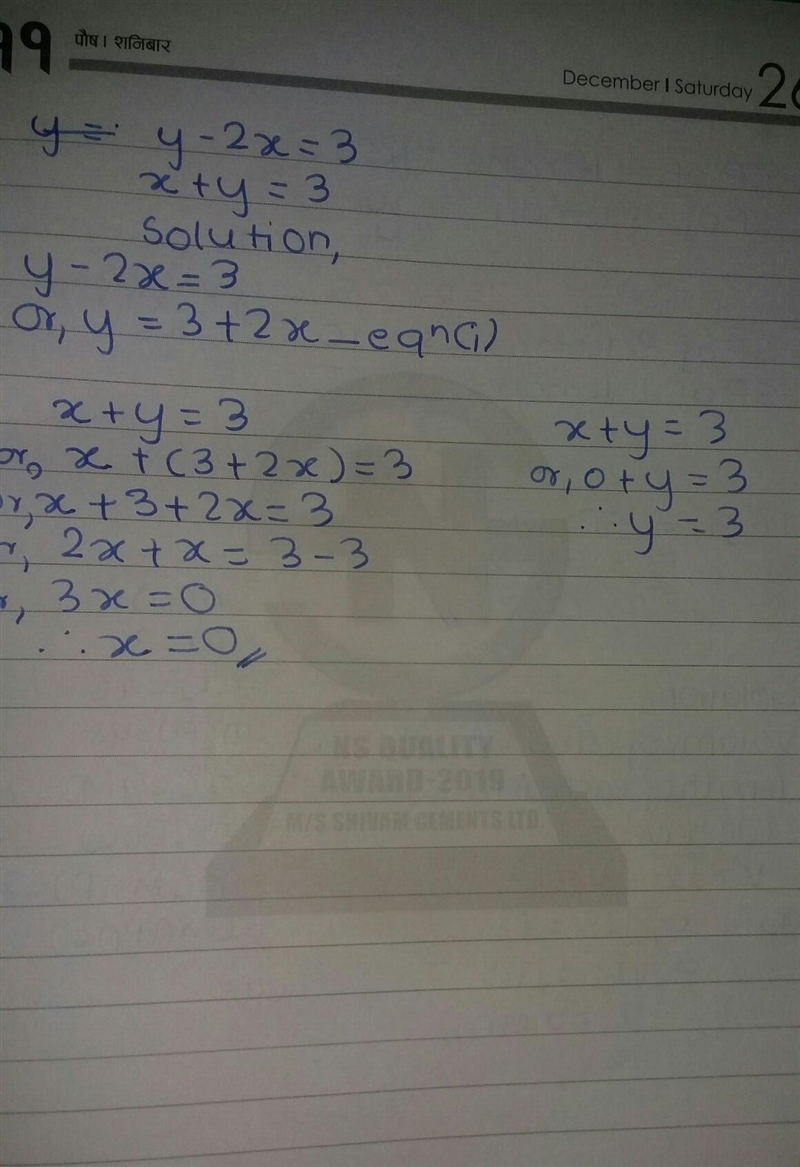 ११
पौष। शनिबार
December I Saturday 26
y = y - 2x = 3
x + y = 3
Solution,
y - 2x = 3
Or, y = 3 + 2x - eqn(i)
x + y = 3
or, x + (3 + 2x) = 3
or, x + 3 + 2x = 3
or, 2x + x = 3 - 3
or, 3x = 0
∴ x = 0
x + y = 3
or, 0 + y = 3
∴ y = 3
NS QUALITY
AWARD-2019
M/S SHIVAM CEMENTS LTD.